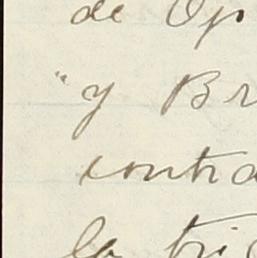 de Op
" y Br
contra
la tri